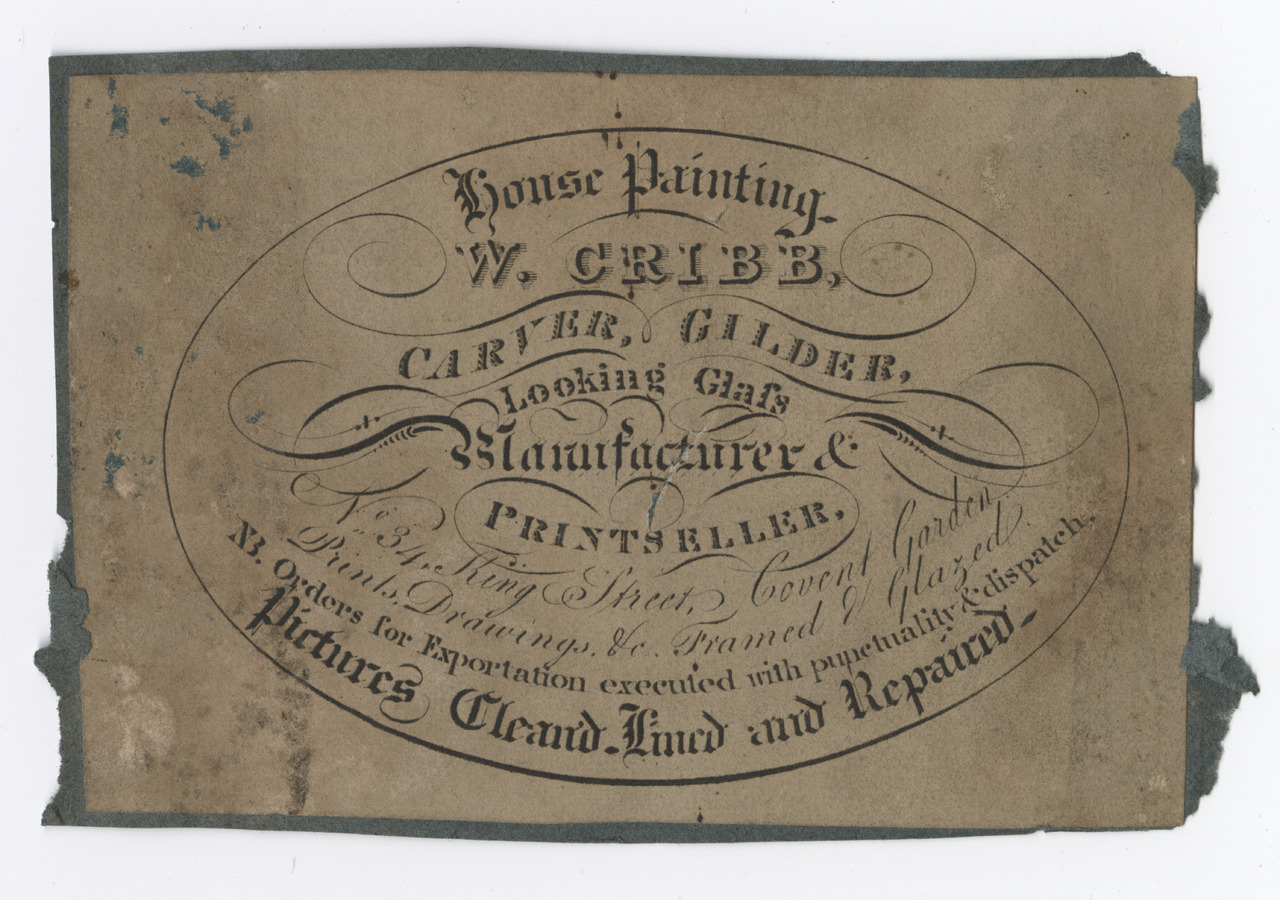 House Painting.
W. CRIBB,
CARVER, GILDER,
Looking Glaſs
Manufacturer &
PRINTSELLER,
No. 34, King Street, Covent Garden
Prints, Drawings, &c. Framed & Glazed.
NB. Orders for Exportation executed with punctuality & dispatch.
Pictures Clean'd. Lined and Repaired.